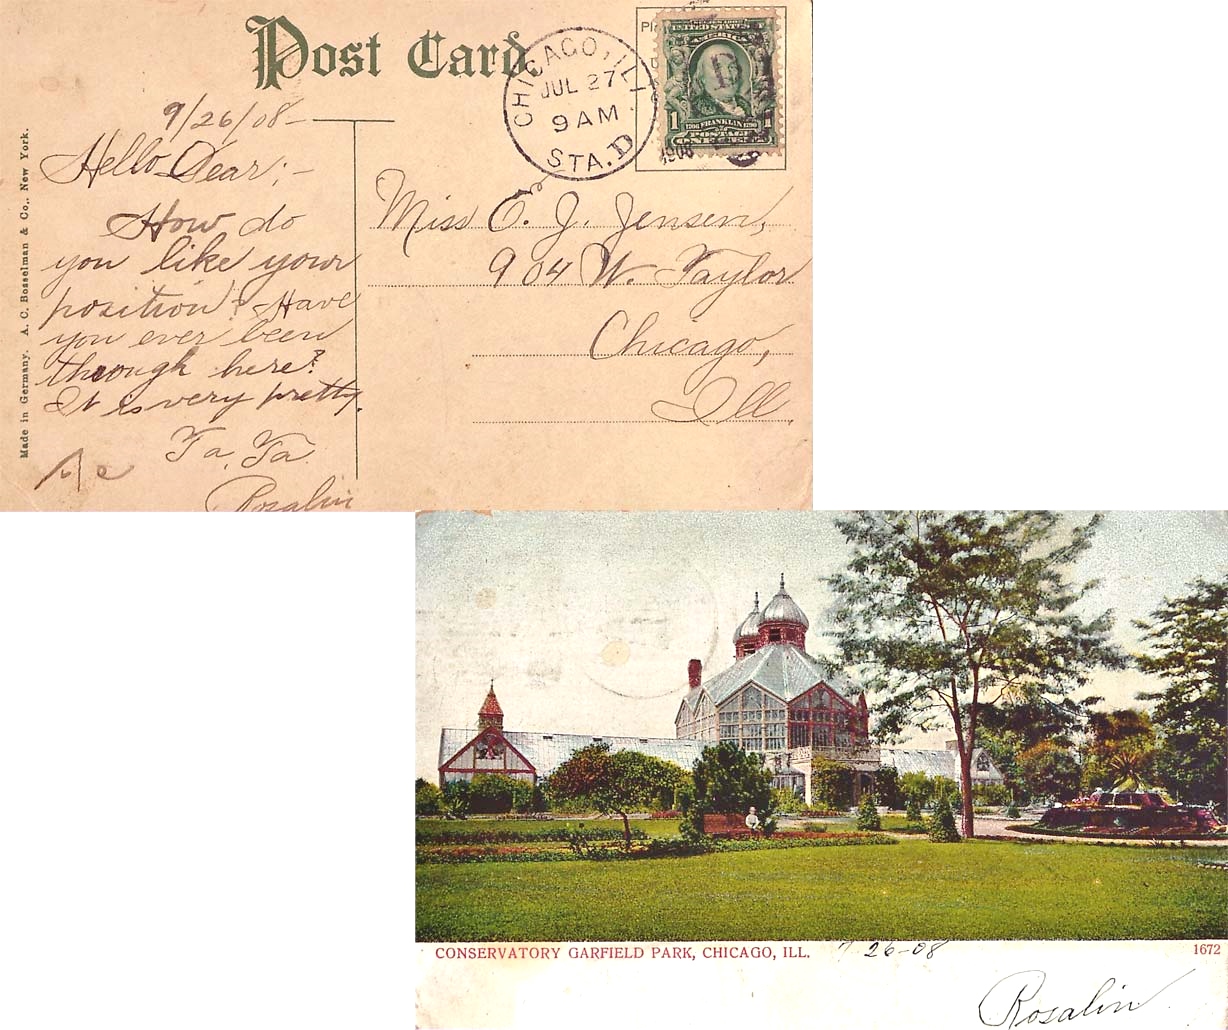 Post Card
CHICAGO, ILL
JUL 27
9 AM
1908
STA. D
UNITED STATES OF
AMERICA
B
1 1706 FRANKLIN 1790 1
POSTAGE
ONE CENT
Made in Germany. A. C. Bosselman & Co., New York.
9/26/08-
Hello Dear;-
How do
you like your
position? Have
you ever been
through here?
It is very pretty.
Ta, Ta
Rosalin
Miss O. J. Jensen,
904 W. Taylor
Chicago,
Ill.
CONSERVATORY GARFIELD PARK, CHICAGO, ILL.
7 26-08
1672
Rosalin